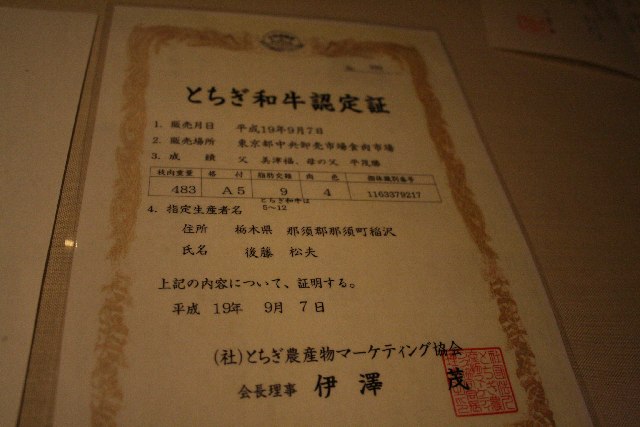 とちぎ和牛認定証
1. 販売月日 平成19年9月7日
2. 販売場所 東京都中央卸売市場食肉市場
3. 成績 父 美津福、母の父 平茂勝
枝肉重量 格付 脂肪交雑 肉色 個体識別番号
483 A5 9 4 1163379217
とちぎ和牛は
5～12
4. 指定生産者名
住所 栃木県 那須郡那須町稲沢
氏名 後藤 松夫
上記の内容について、証明する。
平成 19年 9月 7日
(社)とちぎ農産物マーケティング協会
会長理事 伊澤 茂